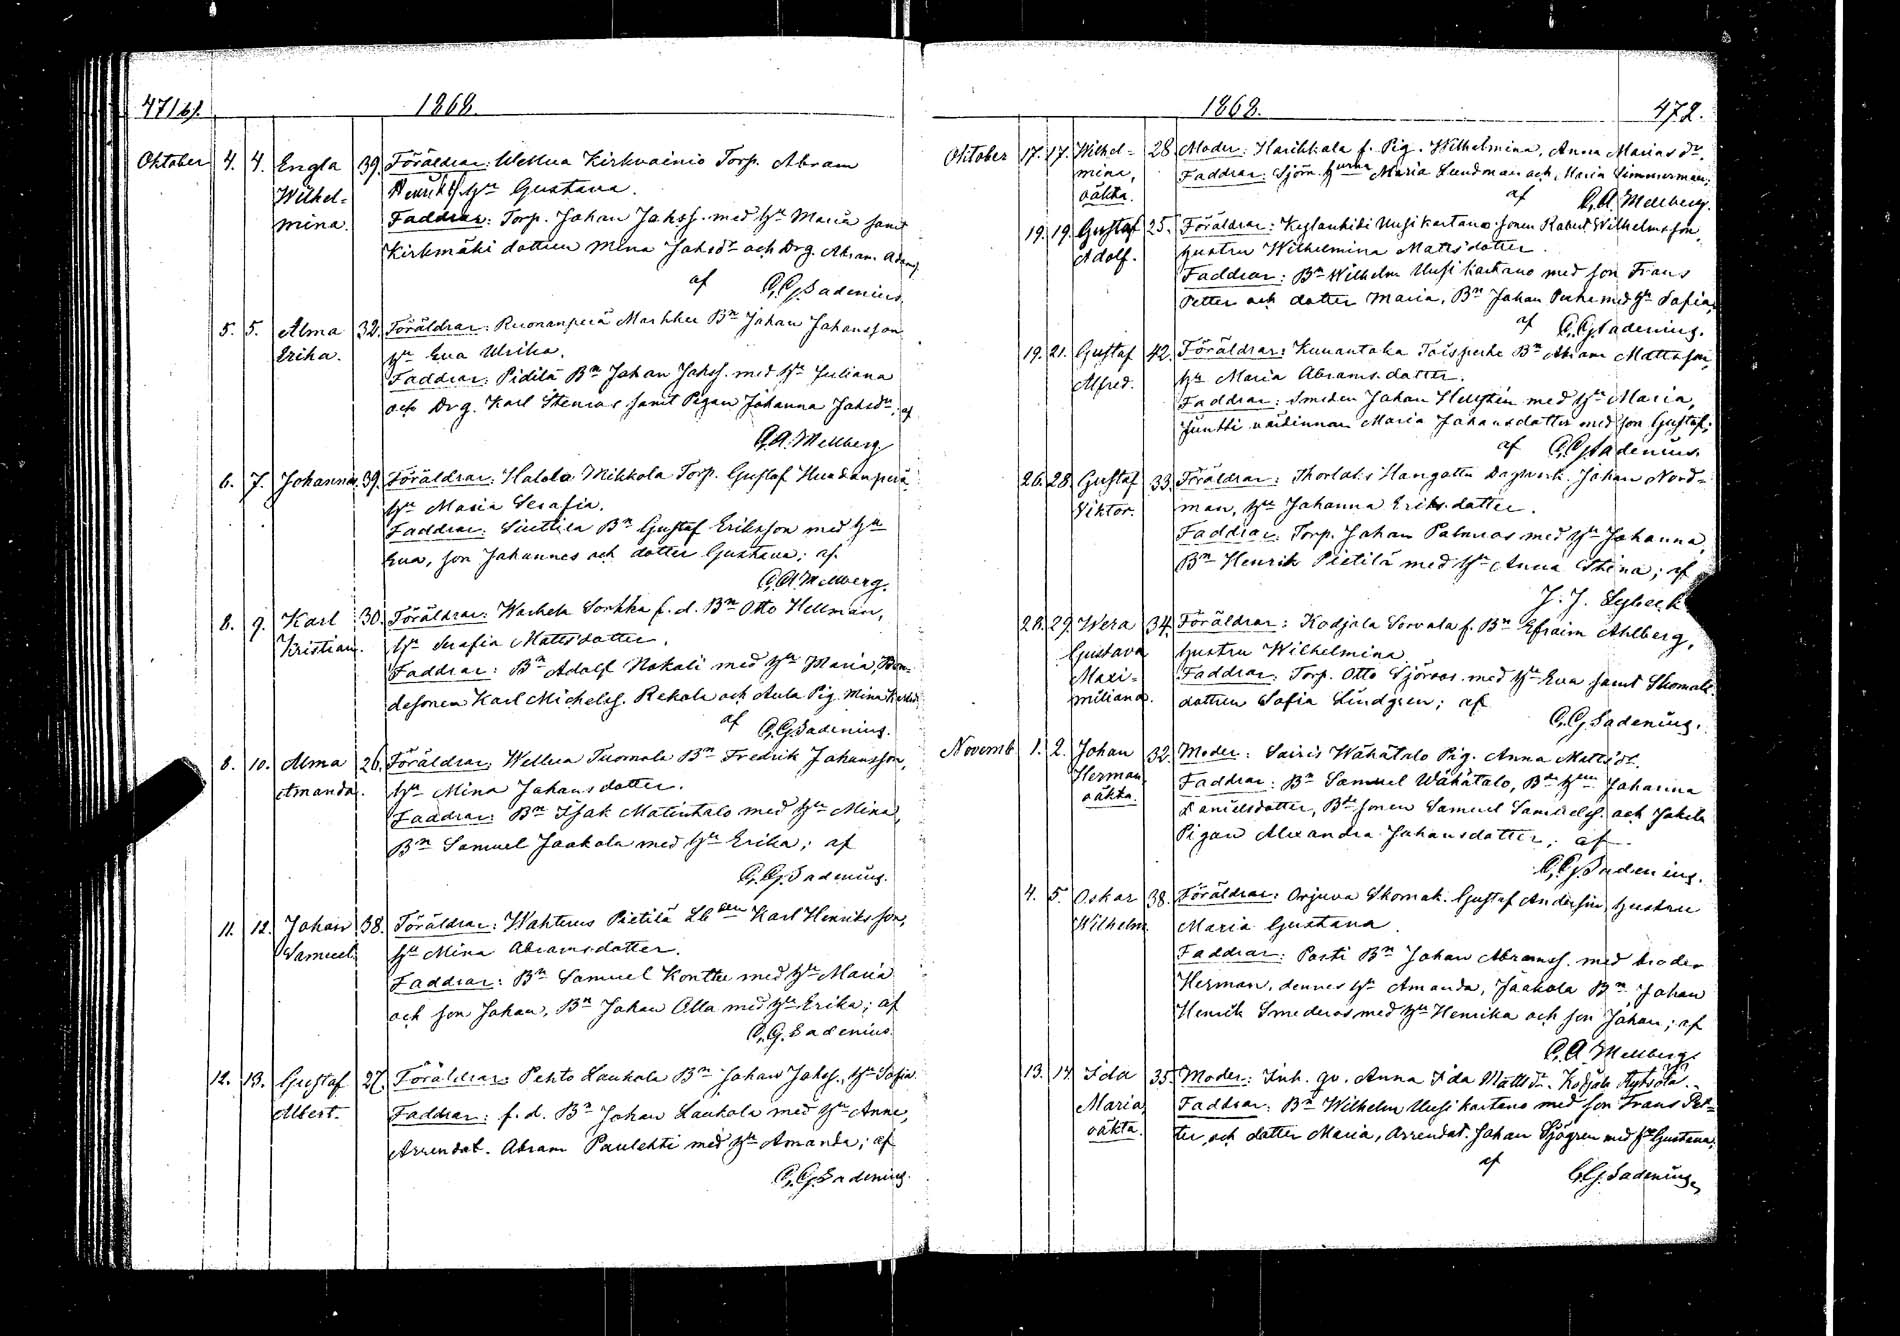 471 b).
1868.
Oktober 4. 4. Engla 39. Föräldrar: Wellua Kirkvainio Torp. Abram
Wilhel= Henrikss. Hu Gustava.
mina. Faddrar: Torp. Johan Johss. med Hu Maria samt
Kirkmäki dottren Mina Johsdr och Drg. Abram Adamss.
af C.G. Sadenius.
5. 5. Alma 32. Föräldrar: Ruonanperä Markku Bn Johan Johansson
Erika. Hu Eva Ulrika.
Faddrar: Pidilä Bn Johan Johss. med Hu Juliana
och Drg. Karl Stenros samt Pigan Johanna Johsdr; af
C.A. Mellberg
6. 7. Johanna. 39. Föräldrar: Halola Mikkola Torp. Gustaf Hundanperä
Hu Maria Serafia.
Faddrar: Simtila Bn Gustaf Eriksson med Hu
Eva, son Johannes och dotter Gustava; af.
C.A. Mellberg.
8. 9. Karl 30. Föräldrar: Warhela Sorkka f.d. Bn Otto Hellman,
Kristian. Hu Serafia Mattsdotter.
Faddrar: Bn Adolf Nokali med Hu Maria, Bon=
desonen Karl Michelss. Rekola och Aula Pig. Mina
af C.G. Sadenius.
8. 10. Alma 26. Föräldrar: Wellua Tuomola Bn Fredrik Johansson,
Amanda. Hu Mina Johansdotter.
Faddrar: Bn Isak Matintalo med Hu Mina,
Bn Samuel Jaakola med Hu Erika; af
C.G. Sadenius.
11. 12. Johan 38. Föräldrar: Wahterus Pietilä Karl Henriksson,
Samuel. Hu Mina Abramsdotter.
Faddrar: Bn Samuel Konttu med Hu Maria
och son Johan, Bn Johan Olla med Hu Erika; af
C.G. Sadenius.
12. 13. Gustaf 27. Föräldrar: Pehto Laukola Bn Johan Johss., Hu Sofia.
Albert. Faddrar: f.d. Bn Johan Laukola med Hu Anna,
Arrendat. Abram Paulehti med Hu Amanda; af
C.G. Sadenius.
1868.
472.
Oktober 17. 17. Wilhel= 28. Moder: Harikkala f. Pig. Wilhelmina, Anna Mariasdr.
mina, Faddrar: Sjöm. Hurna Maria Lundman och Maria Simmerman;
oäkta. af C.A. Mellberg.
19. 19. Gustaf 25. Föräldrar: Keslankibi Uusikartano sonen Robert Wilhelmsson,
Adolf. hustru Wilhelmina Mattsdotter.
Faddrar: Bn Wilhelm Uusikartano med son Frans
Petter och dotter Maria, Bn Johan Perhe med Hu Sofia;
af C.G. Sadenius.
19. 21. Gustaf 42. Föräldrar: Kunantaka Toisperhe Bn Abram Mattsson,
Alfred. Hu Maria Abramsdotter.
Faddrar: Smeden Johan Hellstén med Hu Maria,
Juntti värdinnan Maria Johansdotter med son Gustaf;
af C.G. Sadenius.
26. 28. Gustaf 33. Föräldrar: Thorlaks Hangattu Dagsverk. Johan Nord=
Viktor. man, Hu Johanna Eriksdotter.
Faddrar: Torp. Johan Palmros med Hu Johanna,
Bn Henrik Pietilä med Hu Anna Stina; af
J. J. Sybeck
28. 29. Wera 34. Föräldrar: Kodjala Sorvala f. Bn Efraim Ahlberg,
Gustava hustru Wilhelmina
Maxi= Faddrar: Torp. Otto Sjöroos med Hu Eva samt Skomak.
miliana. dottren Sofia Lindgren; af
C.G. Sadenius.
Novemb. 1. 2. Johan 32. Moder: Sairis Wähätalo Pig. Anna Mattsdr.
Herman, Faddrar: Bn Samuel Wähätalo, Johanna
oäkta. Danielsdotter, Bdesonen Samuel Samuelss. och Jakola
Pigan Alexandra Johansdotter; af
C.G. Sadenius.
4. 5. Oskar 38. Föräldrar: Orjuva Skomak. Gustaf Andersin, hustru
Wilhelm. Maria Gustava.
Faddrar: Porti Bn Johan Abramss. med broder
Herman, dennes Hu Amanda, Jaakola Bn Johan
Henrik Smederos med Hu Henrika och son Johan; af
C.A. Mellberg.
13. 14. Ida 35. Moder: Inh. qv. Anna Ida Mattsdr. Kodjala Rytsölä.
Maria, Faddrar: Bn Wilhelm Uusikartano med son Frans Pet=
oäkta. ter och dotter Maria, Arrendat. Johan Sjögren med Hu Gustava;
af C.G. Sadenius